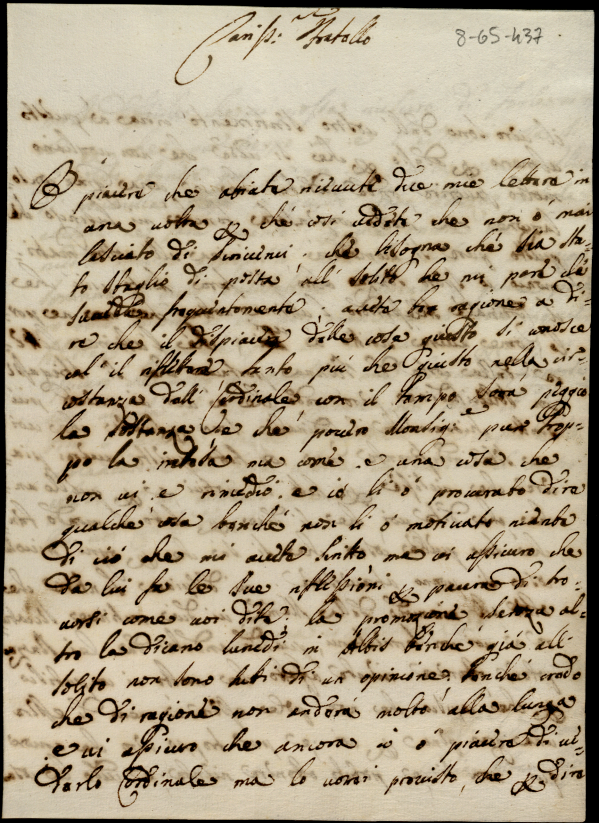 Cariss:mo Fratello
8-65-437
O piacere che abiate riceuute due mie lettere in
una uolta che cosi uedete che non ó mai
lasciato di seriuerui che bisogna che sia sta=
to sbaglio di posta all' solito che mi pare che
frequentemente: auete ragione a di=
re che il dispiacer delle cose giusto si conosce
col' il riflettere tanto piú che giusto nella cir=
costanza dell' Cardinale con il tempo sará peggio
la sostanza che pouero Monsig:re pur trop=
po la ma come e una cosa che
non ui e rimedio e io li ó procurato dire
qualche cosa benché non li ó motiuato niente
di ció che mi auete scritto ma ui assicuro che
da lui fa le sue riflessioni paura di tro=
uarsi come uoi dite: la promozione senza al=
tro la dicano lunedi in Albis benche giá all'
solito non sono tuti di un opinione, benché credo
che di ragione non anderá molto alla lunga
e ui assicuro che ancora io ó piacere di ue=
derlo Cardinale ma lo uorrei prouisto, che dire